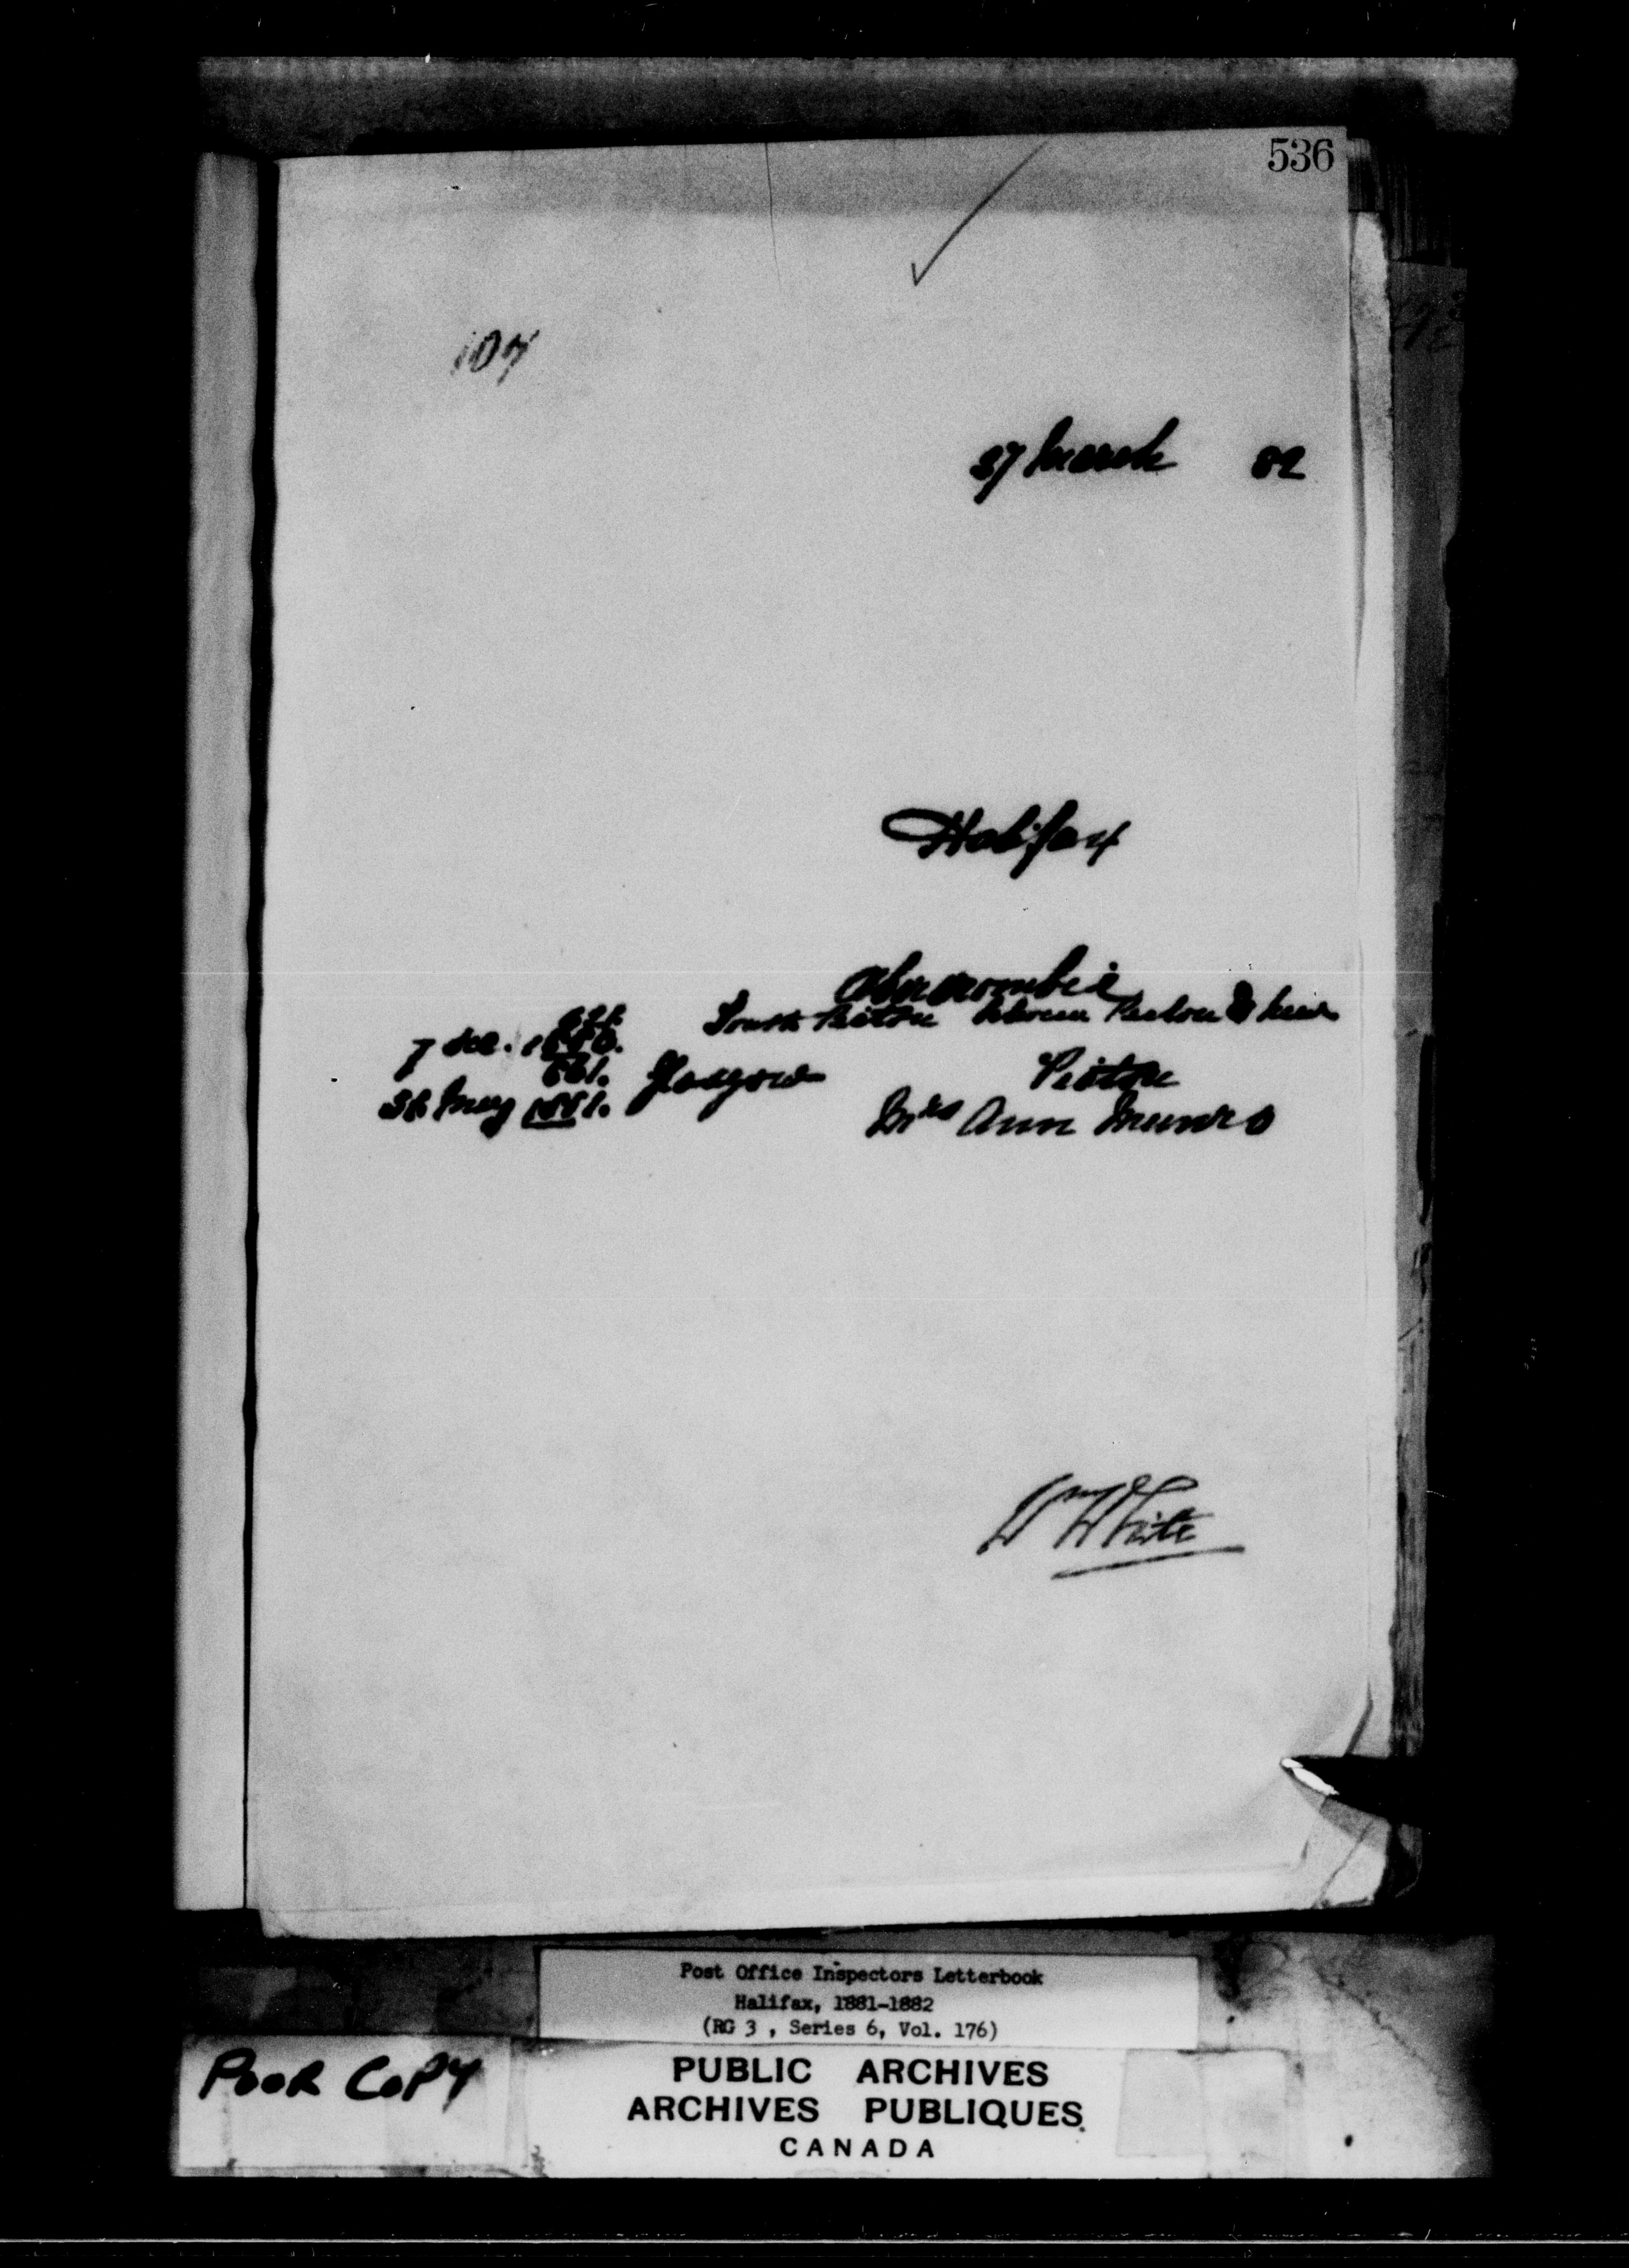 536
107
27 March 82
Halifax
Abercrombie
7 Dec. 1880. South Pictou between Pictou & New
Glasgow Pictou
31 May 1881. Mrs Ann Munro
Wm White
Post Office Inspectors Letterbook
Halifax, 1881-1882
(RG 3 , Series 6, Vol. 176)
POOR COPY
PUBLIC ARCHIVES
ARCHIVES PUBLIQUES
CANADA